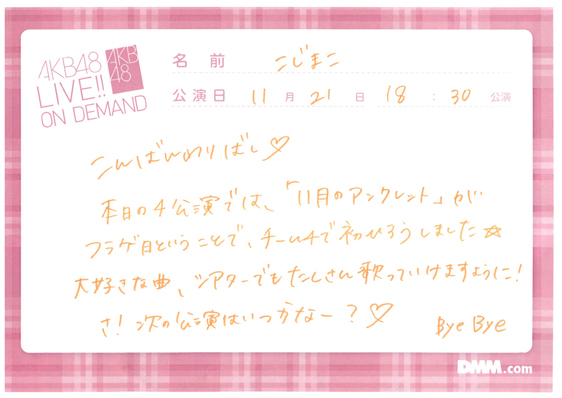 AKB48
LIVE!!
ON DEMAND
AKB
48
名前 こじまこ
公演日 11月21日 18:30公演
こんばんわりばし♡
本日の4公演では、「11月のアンクレット」が
フラゲ日ということで、チーム4で初ひろうしました☆
大好きな曲、シアターでもたくさん歌っていけますように!
さ!次の公演はいつかなー?♡
Bye Bye
DMM.com